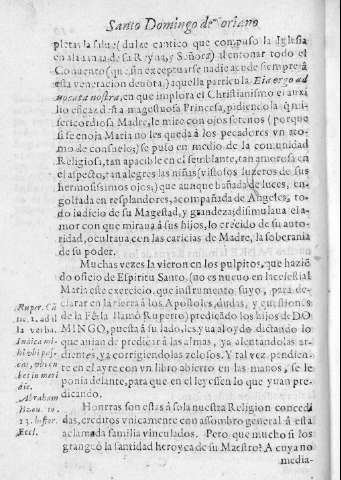 Santo Domingo de Soriano
pletas la salue (dulce cantico que compuso la Iglesia
en alabança desta Reyna, y Señora) al entonar todo el
Conuento (que sin exceptuarse nadie acude siempre à
esta veneracion deuota,) aquella particula. Eia ergo ad
uocata nostra, en que implora el Christianismo el auxi
lio eficaz desta magestuosa Princesa, pidiendola q mi-
sericordiosa Madre, le mire con ojos serenos (porque
si se enoja Maria no les queda à los pecadores vn ato-
mo de consuelo;) se puso en medio de la comunidad
Religiosa, tan apacible en el semblante, tan amorosa en
el aspecto, tan alegres las niñas (vistosos luzeros de sus
hermosissimos ojos,) que aunque bañada de luces, en-
golfada en resplandores, acompañada de Angeles, to-
do indicio de su Magestad, y grandeza; disimulaua el a-
mor con que miraua à sus hijos, lo crecido de su auto-
ridad, ocultaua con las caricias de Madre, la soberania
de su poder.
Muchas vezes la vieron en los pulpitos, que haziē
do oficio de Espiritu Santo, (no es nueuo en la celestial
Maria este exercicio, que instrumento suyo, para de-
clarar en la tierra à los Apostoles, dudas, y questiones
de la Fè la llamò Ruperto) predicando los hijos de DO
MINGO, puesta à su lado, les yua al oydo dictando lo
que auian de predicar à las almas, ya alentandolas ar-
dientes, ya corrigiendolas zelosos. Y tal vez pendien-
te en el ayre con vn libro abierto en las manos, se le
ponia delante, para que en el leyessen lo que yuan pre-
dicando.
Honrras son estas à sola nuestra Religion concedi
das, creditos vnicamente con assombro general à esta
aclamada familia vinculados. Pero que mucho si los
grangeò la santidad heroyca de su Maestro? A cuya no
media-
Ruper. Cā
tic. 1. ad il
la verba.
Indica mi-
hi vbi pas-
cas, vbi cu
bes in meri
die.
Abraham
Bzou. to.
13. histor.
Eccl.